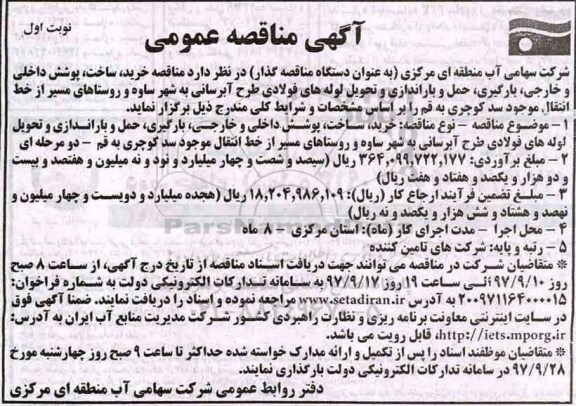 نوبت اول
آگهی مناقصه عمومی
شرکت سهامی آب منطقه ای مرکزی (به عنوان دستگاه مناقصه گذار) در نظر دارد مناقصه خرید، ساخت، پوشش داخلی
و خارجی، بارگیری، حمل و باراندازی و تحویل لوله های فولادی طرح آبرسانی به شهر ساوه و روستاهای مسیر از خط
انتقال موجود سد کوچری به قم را بر اساس مشخصات و شرایط کلی مندرج ذیل برگزار نماید.
۱ - موضوع مناقصه - نوع مناقصه: خرید، ساخت، پوشش داخلی و خارجی، بارگیری، حمل و باراندازی و تحویل
لوله های فولادی طرح آبرسانی به شهر ساوه و روستاهای مسیر از خط انتقال موجود سد کوچری به قم - دو مرحله ای
۲ - مبلغ برآوردی: ۳۶۴,۰۹۹,۷۲۲,۱۷۷ ریال (سیصد و شصت و چهار میلیارد و نود و نه میلیون و هفتصد و بیست
و دو هزار و یکصد و هفتاد و هفت ریال)
۳ - مبلغ تضمین فرآیند ارجاع کار (ریال): ۱۸,۲۰۴,۹۸۶,۱۰۹ ریال (هجده میلیارد و دویست و چهار میلیون و
نهصد و هشتاد و شش هزار و یکصد و نه ریال)
۴ - محل اجرا - مدت اجرای کار (ماه): استان مرکزی - ۸ ماه
۵ - رتبه و پایه: شرکت های تامین کننده
* متقاضیان شرکت در مناقصه می توانند جهت دریافت اسناد مناقصه از تاریخ درج آگهی، از ساعت ۸ صبح
روز ۹۷/۹/۱۰ الی ساعت ۱۹ روز ۹۷/۹/۱۷ به سامانه تدارکات الکترونیکی دولت به شماره فراخوان:
۲۰۰۹۷۱۱۶۴۰۰۰۰۱۵ به آدرس www.setadiran.ir مراجعه نموده و اسناد را دریافت نمایند. ضمنا آگهی فوق
در سایت اینترنتی معاونت برنامه ریزی و نظارت راهبردی کشور شرکت مدیریت منابع آب ایران به آدرس:
http://iets.mporg.ir، قابل رویت می باشد.
* متقاضیان موظفند اسناد را پس از تکمیل و ارائه مدارک خواسته شده حداکثر تا ساعت ۹ صبح روز چهارشنبه مورخ
۹۷/۹/۲۸ در سامانه تدارکات الکترونیکی دولت بارگذاری نمایند.
دفتر روابط عمومی شرکت سهامی آب منطقه ای مرکزی